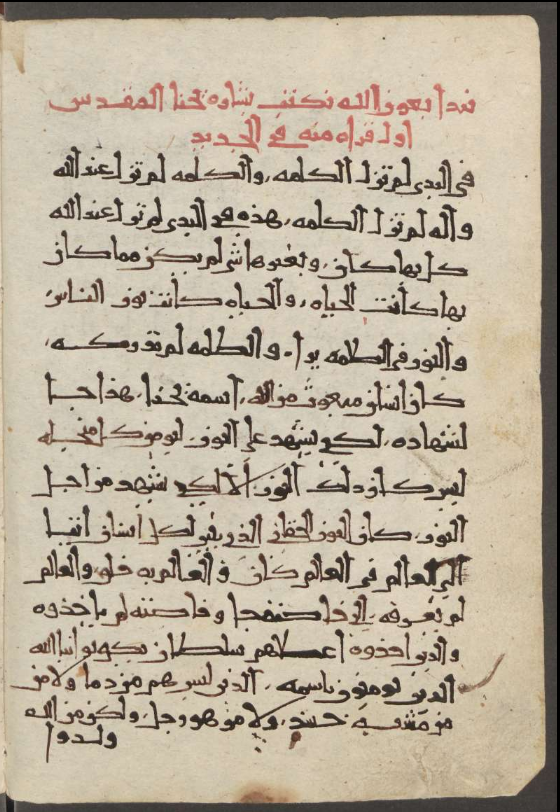 نبدا بعون الله نكتب بشارة يحنا المقدس
اول قراه منه في الجديد
في البدي لم تزل الكلمه، والكلمه لم تزل عند الله
واله لم تزل الكلمه، هذه في البدي لم تزل عند الله
كل بها كان، وبغيرها شي لم يكن مما كان
بها كانت الحياه، والحياه كانت نور الناس،
والنور في الظلمه يرا، والظلمه لم تدركه،
كان انسان مبعوث من الله، اسمه يحنا، هذا جا
لشهاده، لكي يشهد على النور، ليومن كل من
ليس كان ذلك النور الا لكي يشهد من اجل
النور، كان النور الحقاني الذي ينير لكل انسان اتيا
الى العالم في العالم كان والعالم به خلق والعالم
لم يعرفه، الى وخاصته لم ياخذوه
والذين اخذوه اعطاهم سلطان يكونوا ابنا الله
الذين يومنون باسمه، الذين ليس هم من دما ولا من
من مشيه جسد، ولا من هوى رجل، ولكن من الله
ولدوا